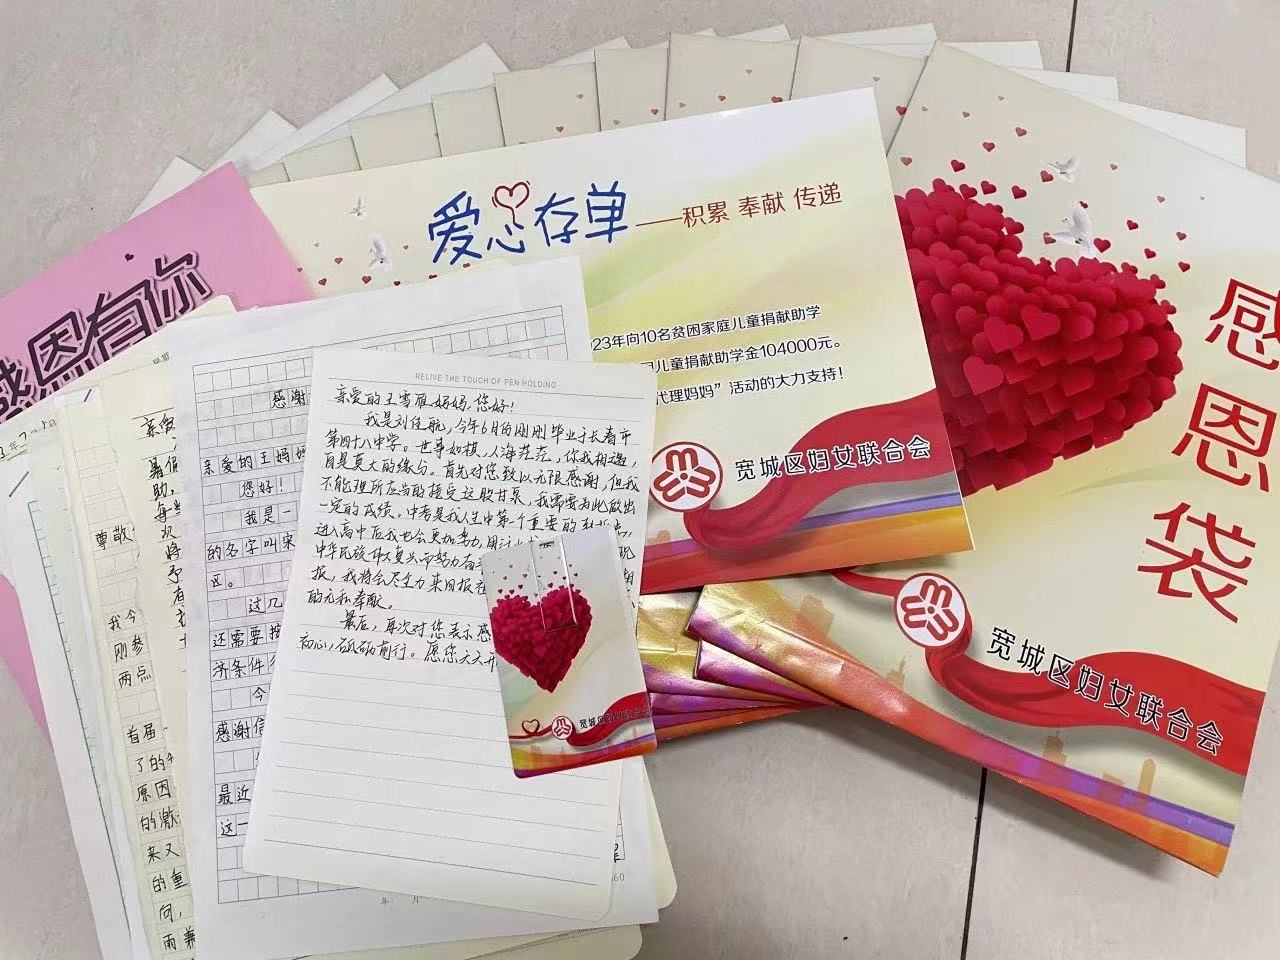 感恩有你
爱心存单——积累 奉献 传递
23年向10名贫困家庭儿童捐献助学
儿童捐献助学金104000元。
代理妈妈”活动的大力支持！
宽城区妇女联合会
感恩袋
宽城区妇女联合会
RELIVE THE TOUCH OF PEN HOLDING
亲爱的王雪雁妈妈，您好！
我是刘佳航，今年6月的刚刚毕业于长春市
第四十八中学。世事如棋，人海茫茫，你我相遇，
自是莫大的缘分。首先对您致以无限感谢，但我
不能理所应当的接受这股甘泉，我需要为此做出
一定的成绩。中考是我人生中第一个重要的
进入高中后我也会更加努力，用
中华民族伟大复兴而努力奋
报，我将会尽全力来回报社
的无私奉献。
最后，再次对您表示感
初心，砥砺前行。愿您天天开
宽城区妇女联合会
感谢
亲爱的王妈妈
您好！
我是一
的名字叫宋
区。
这几
还需要按
济条件
今
感谢信
最近
这一
年 月
尊敬
我今
刚参
两点
首届
了的
原因
的激
来又
的重
向，
雨兼